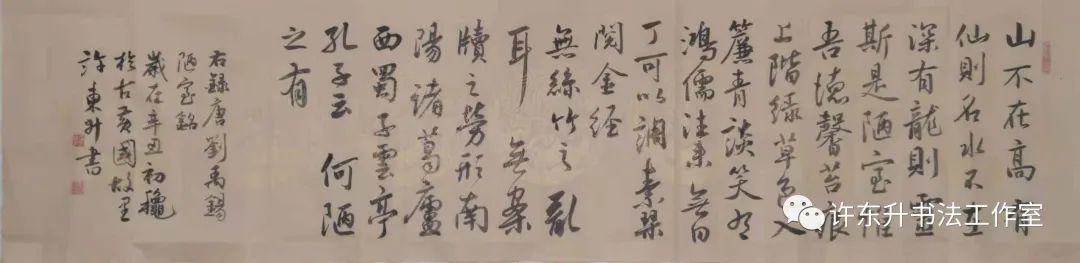 山不在高有
仙則名水不在
深有龍則靈
斯是陋室惟
吾德馨苔痕
上階緑草色入
簾青談笑有
鴻儒往来無白
丁可以調素琴
閲金经
無絲竹之亂
耳 無案
牘之勞形南
陽諸葛廬
西蜀子雲亭
孔子云 何陋
之有
右録唐劉禹錫
陋室銘
歲在辛丑初穐
於古黄國故里
許東升書
许东升书法工作室